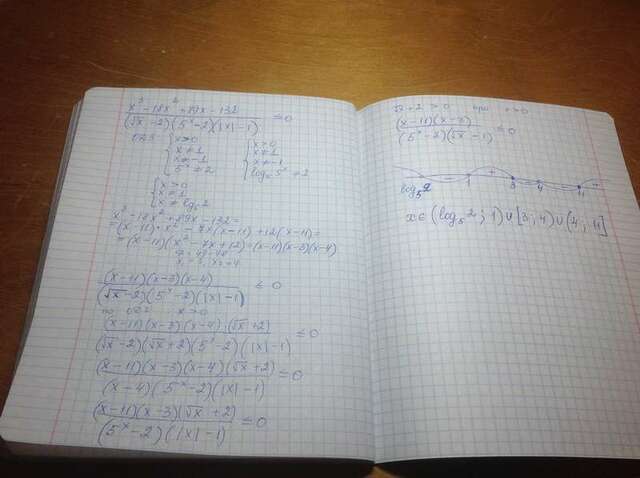 x³-18x²+89x-132
(√x-2)(5ˣ-2)(|x|-1) ≤0
ОДЗ { x>0 { x>0
x≠1 x≠1
x≠-1 x≠-1
5ˣ≠2 log₅2≠2
{ x>0
x≠1
x≠log₅2
x³-18x²+89x-132=
=(x-11)·x²-7x(x-11)+12(x-11)=
=(x-11)(x²-7x+12)=(x-11)(x-3)(x-4)
(x-11)(x-3)(x-4)
(√x-2)(5ˣ-2)(|x|-1) ≤0
по ОДЗ x>0
(x-11)(x-3)(x-4)·(√x+2)
(√x-2)(√x+2)(5ˣ-2)(|x|-1) ≤0
(x-11)(x-3)(x-4)(√x+2)
(x-4)(5ˣ-2)(|x|-1) ≤0
(x-11)(x-3)(√x+2)
(5ˣ-2)(|x|-1) ≤0
√x+2>0 при x>0
(x-11)(x-3)
(5ˣ-2)(√x-1) ≤0
- + - - +
log₅2 1 3 4 11
x∈(log₅2; 1)∪[3; 4)∪(4; 11]